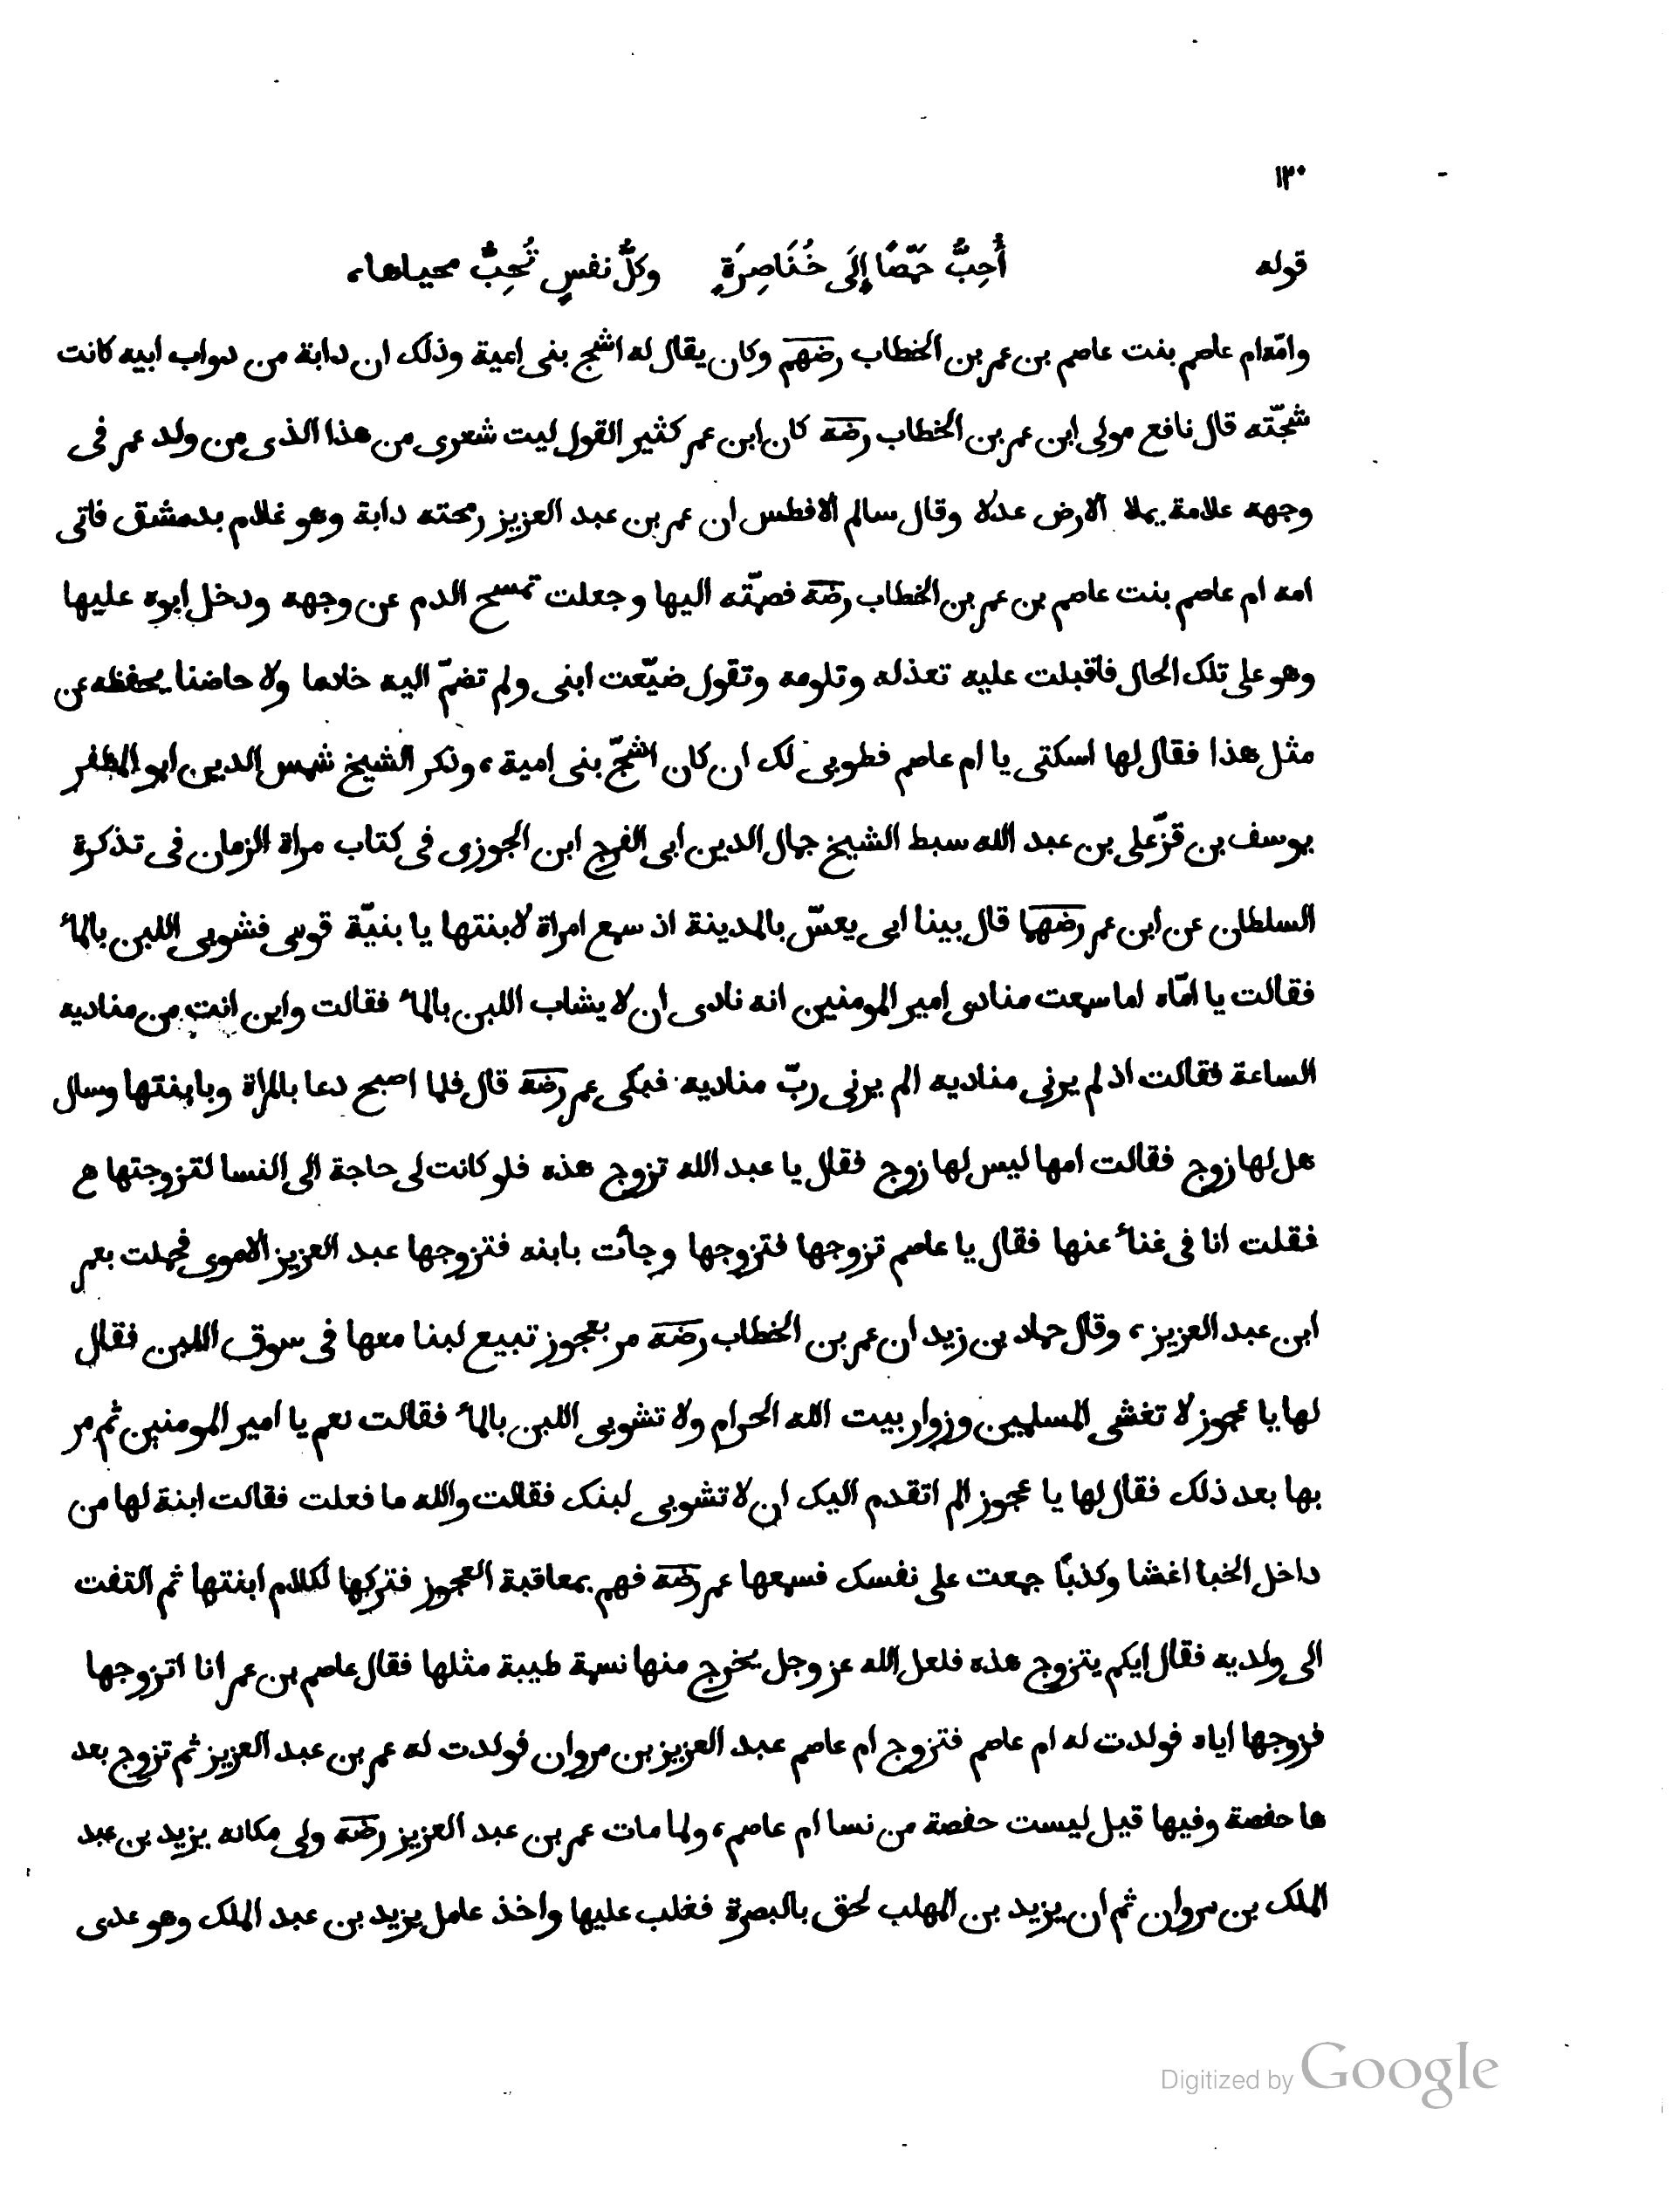 ١٣٠
قوله أُحِبُّ حَمْصًا إِلَى خُنَاصِرَةٍ وكلُّ نفسٍ تُحِبُّ محياها،
وامّه ام عاصم بنت عاصم بن عمر بن الخطاب رضهم وكان يقال له اشج بنى امية وذلك ان دابة من دواب ابيه كانت
شجّته قال نافع مولى ابن عمر بن الخطاب رضه كان ابن عمر كثير القول ليت شعرى من هذا الذى من ولد عمر فى
وجهه علامة يملا الارض عدلا وقال سالم الافطس ان عمر بن عبد العزيز رمحته دابة وهو غلام بدمشق فاتى
امه ام عاصم بنت عاصم بن عمر بن الخطاب رضه فضمّته اليها وجعلت تمسح الدم عن وجهه ودخل ابوه عليها
وهو على تلك الحال فاقبلت عليه تعذله وتلومه وتقول ضيّعت ابنى ولم تضمّ اليه خادما ولا حاضنا يحفظه عن
مثل هذا فقال لها اسكتى يا ام عاصم فطوبى لك ان كان اشجّ بنى امية، وذكر الشيخ شمس الدين ابو المظفر
يوسف بن قزّعلى بن عبد الله سبط الشيخ جمال الدين ابى الفرج ابن الجوزى فى كتاب مراة الزمان فى تذكرة
السلطان عن ابن عمر رضهما قال بينا ابى يعسّ بالمدينة اذ سمع امراة لابنتها يا بنيّة قومى فشوبى اللبن بالماء
فقالت يا امّاه اما سمعت منادى امير المومنين انه نادى ان لا يشاب اللبن بالماء فقالت واين انت من مناديه
الساعة فقالت اذ لم يرنى مناديه الم يرنى ربّ مناديه فبكى عمر رضه قال فلما اصبح دعا بالمراة وبابنتها وسال
هل لها زوج فقالت امها ليس لها زوج فقال يا عبد الله تزوج هذه فلو كانت لى حاجة الى النسا لتزوجتها ع
فقلت انا فى غناء عنها فقال يا عاصم تزوجها فتزوجها وجأت بابنه فتزوجها عبد العزيز الاموى فحملت بعمر
ابن عبد العزيز، وقال حماد بن زيد ان عمر بن الخطاب رضه مر بعجوز تبيع لبنا معها فى سوق اللبن فقال
لها يا عجوز لا تغشى المسلمين وزوار بيت الله الحرام ولا تشوبى اللبن بالماء فقالت نعم يا امير المومنين ثم مر
بها بعد ذلك فقال لها يا عجوز الم اتقدم اليك ان لا تشوبى لبنك فقالت والله ما فعلت فقالت ابنة لها من
داخل الخبا اغشا وكذبًا جمعت على نفسك فسمعها عمر رضه فهم بمعاقبة العجوز فتركها لكلام ابنتها ثم التفت
الى ولديه فقال ايكم يتزوج هذه فلعل الله عز وجل يخرج منها نسمة طيبة مثلها فقال عاصم بن عمر انا اتزوجها
فزوجها اياه فولدت له ام عاصم فتزوج ام عاصم عبد العزيز بن مروان فولدت له عمر بن عبد العزيز ثم تزوج بعد
ها حفصة وفيها قيل ليست حفصة من نسا ام عاصم، ولما مات عمر بن عبد العزيز رضه ولى مكانه يزيد بن عبد
الملك بن مروان ثم ان يزيد بن المهلب لحق بالبصرة فغلب عليها واخذ عامل يزيد بن عبد الملك وهو عدى
Digitized by Google